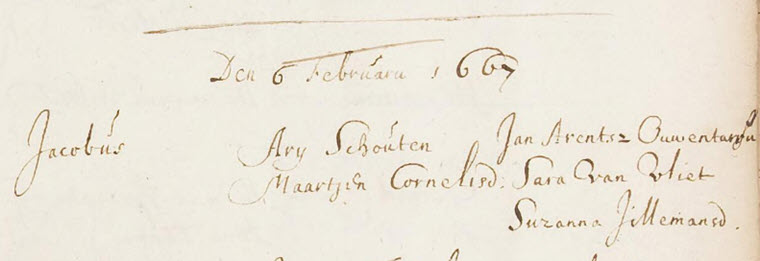 Den 6 Februaru 1667
Jacobus Ary Schouten Jan Arentsz
Maartjen Cornelisd: Sara Van Vliet
Suzanna Jillemansd.